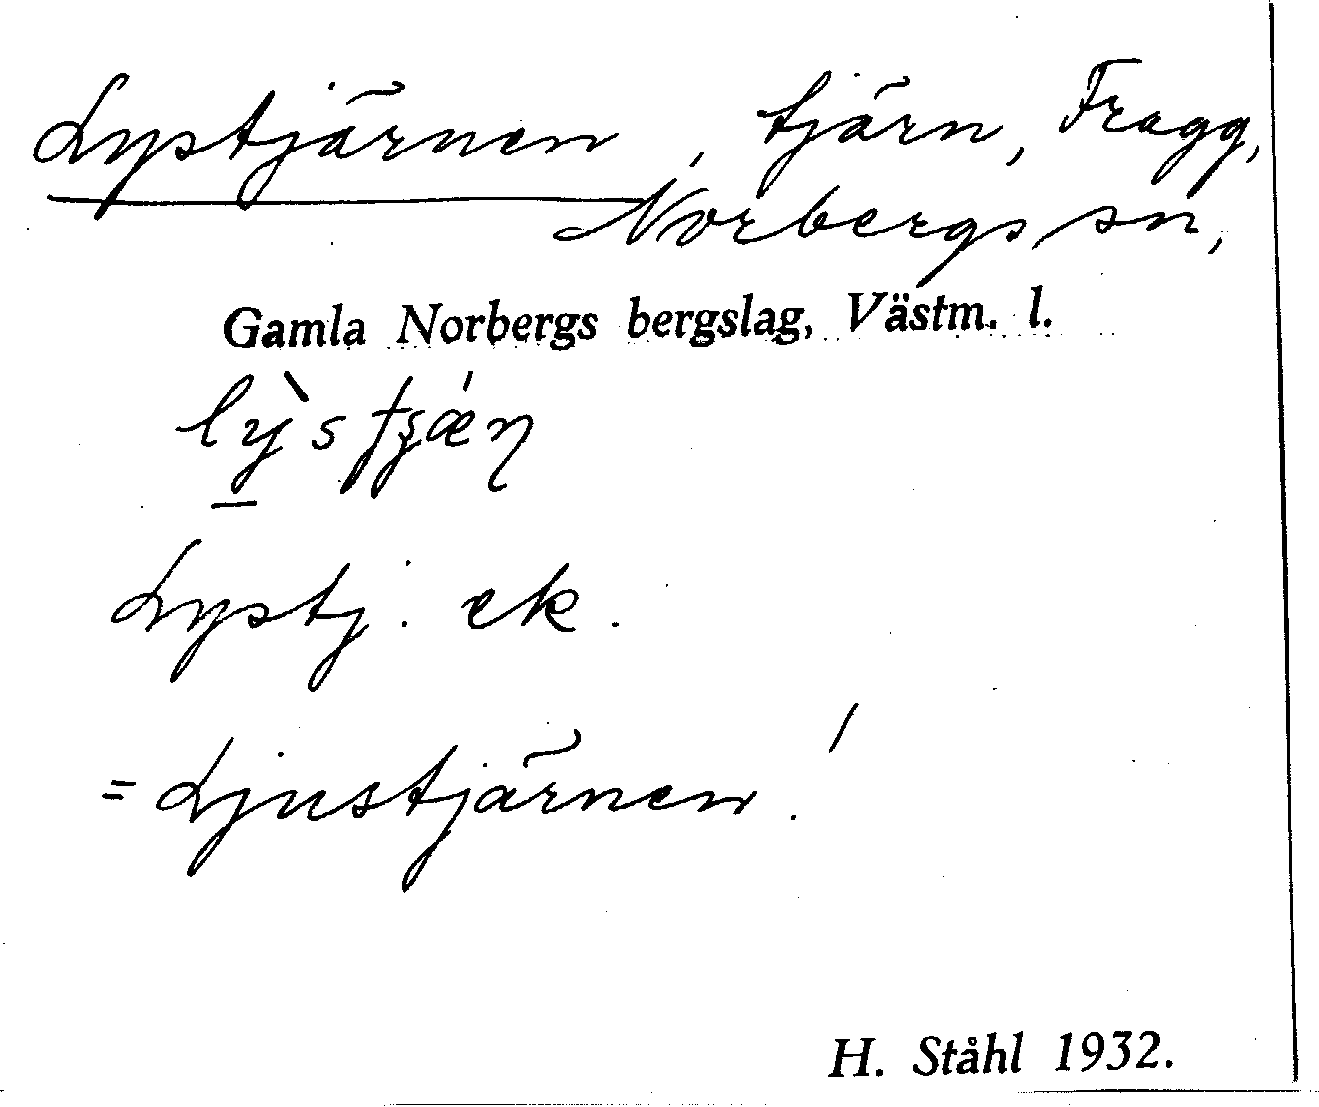 Lystjärnen, tjärn, Fragg,
Norbergs sn,
Gamla Norbergs bergslag, Västm. l.
Lystj. ek.
= Ljustjärnen.
H. Ståhl 1932.